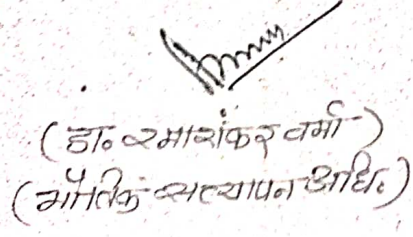 (डा० रमाशंकर वर्मा)
(भौतिक सत्यापन अधि.)